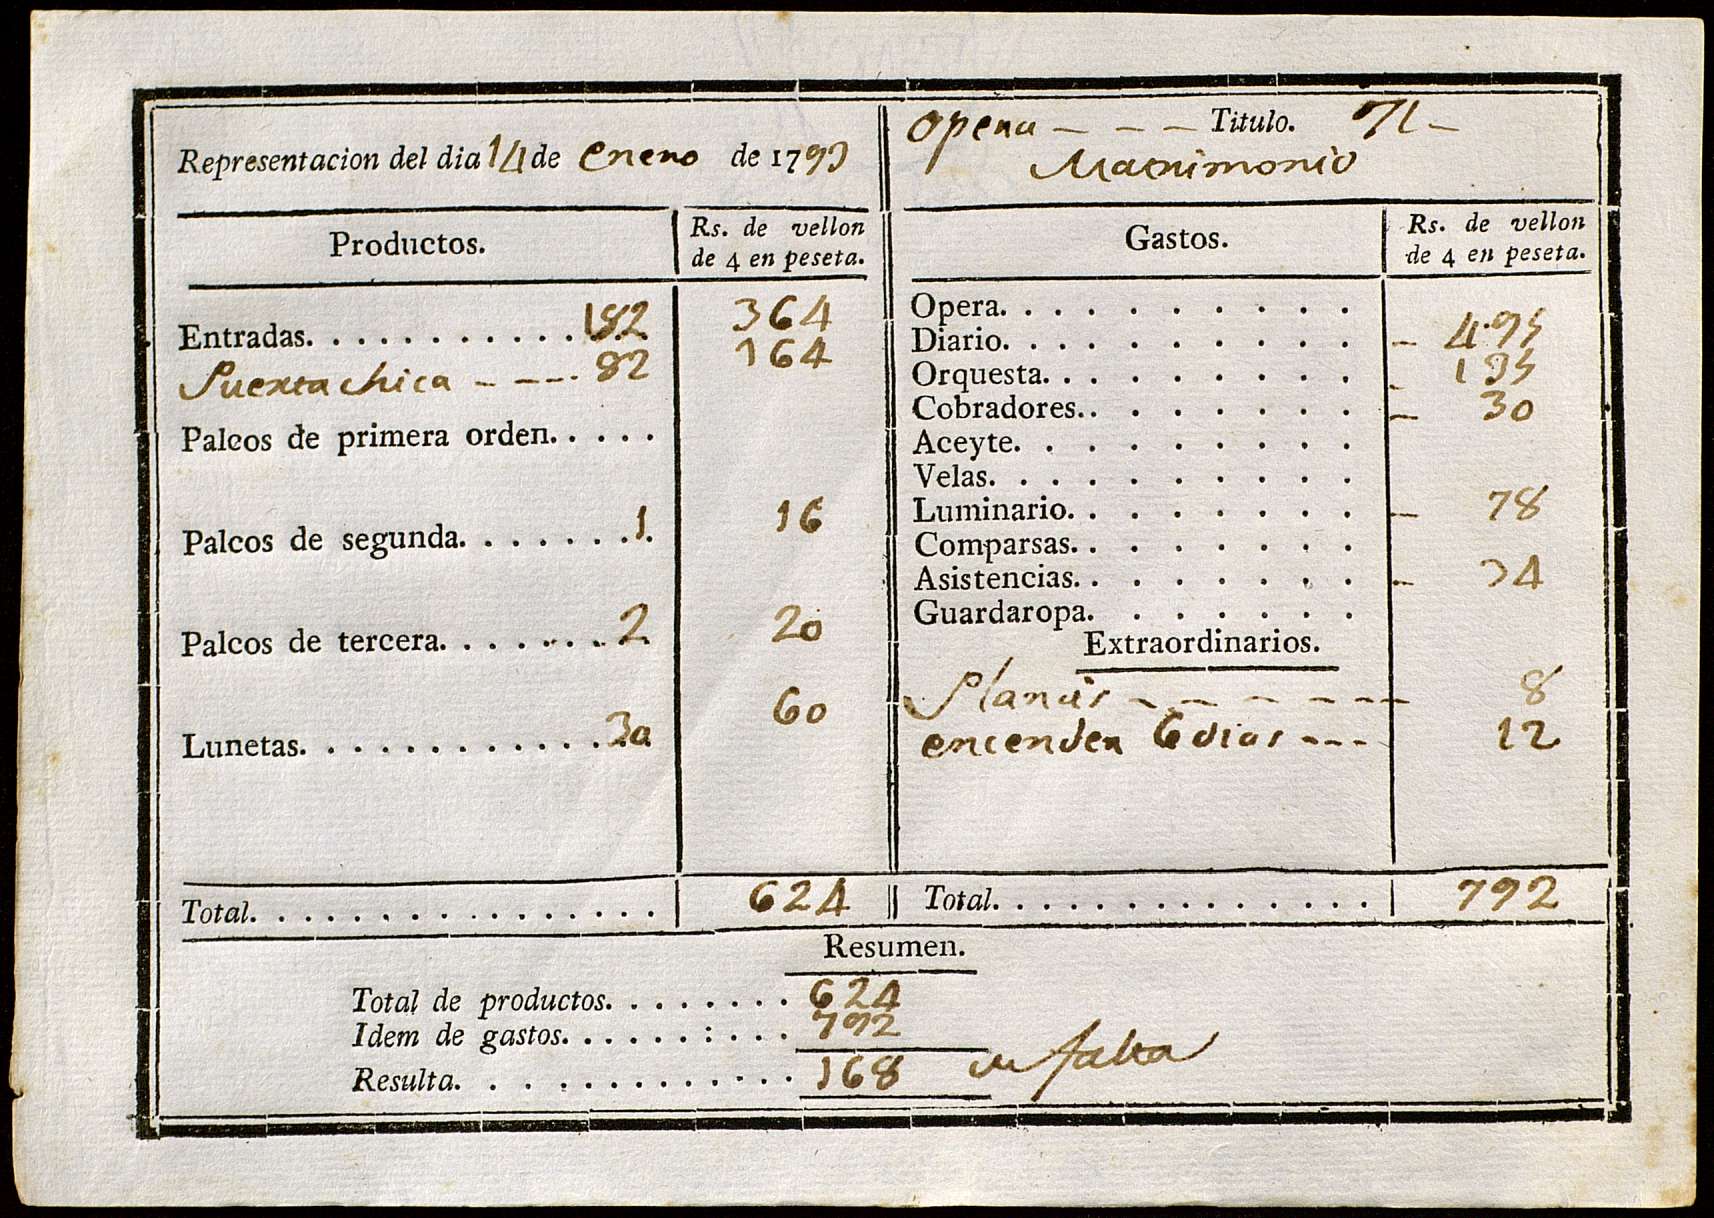 Representacion del dia 14 de Enero de 1793
Opera - - - Titulo. El -
Matrimonio
Productos.
Rs. de vellon
de 4 en peseta.
Entradas. . . . . . . . . . . 182 364
Puerta chica - - - - 82 164
Palcos de primera orden. . . . .
Palcos de segunda. . . . . . . 1 16
Palcos de tercera. . . . . . . 2 20
Lunetas. . . . . . . . . . . . 30 60
Total. . . . . . . . . . . . . . . . 624
Gastos.
Rs. de vellon
de 4 en peseta.
Opera. . . . . . . . .
Diario. . . . . . . . . - 495
Orquesta. . . . . . . . - 135
Cobradores. . . . . . . - 30
Aceyte. . . . . . . . .
Velas. . . . . . . . . .
Luminario. . . . . . . . - 78
Comparsas. . . . . . . .
Asistencias. . . . . . . - 34
Guardaropa. . . . . . .
Extraordinarios.
- - - - - - 8
encender 6 dias - - - 12
Total. . . . . . . . . . . . . . . 792
Resumen.
Total de productos. . . . . . . . 624
Idem de gastos. . . . . . : . . . 792
Resulta. . . . . . . . . . . . . 168 falta